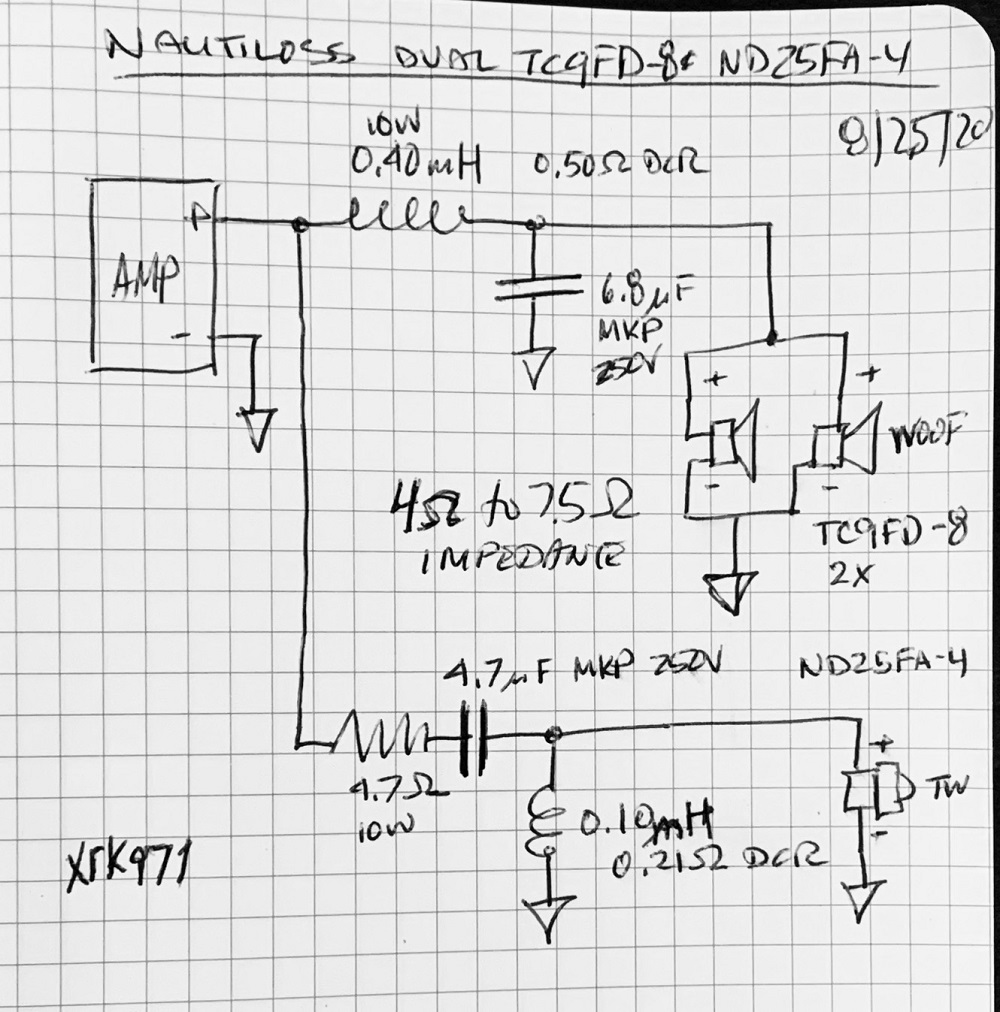 NAUTILOSS DUAL TC9FD-8 & ND25FA-4
8/25/20
10W
0.40mH 0.50Ω DCR
+
AMP
-
6.8µF
MKP
250V
+
+
WOOF
-
-
4Ω to 7.5Ω
IMPEDANCE
TC9FD-8
2X
4.7µF MKP 250V
ND25FA-4
+
TW
-
4.7Ω
10W
0.10mH
0.21Ω DCR
XRK971